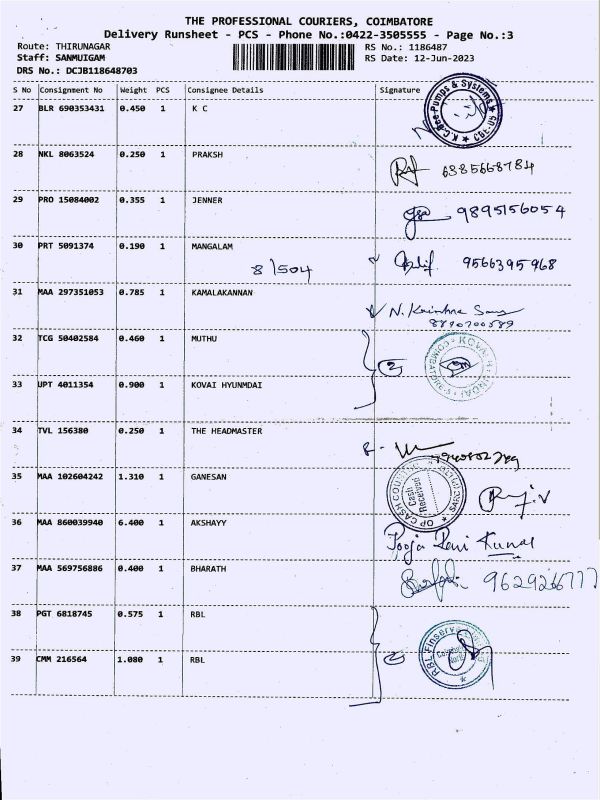 THE PROFESSIONAL COURIERS, COIMBATORE
Delivery Runsheet - PCS - Phone No.:0422-3505555 - Page No.:3
Route: THIRUNAGAR RS No.: 1186487
Staff: SANMUIGAM RS Date: 12-Jun-2023
DRS No.: DCJB118648703
S No Consignment No Weight PCS Consignee Details Signature
27 BLR 690353431 0.450 1 K C
K.Cee Pumps & Systems CBE-05
28 NKL 8063524 0.250 1 PRAKSH
6385668784
29 PRO 15084002 0.355 1 JENNER
9895156054
30 PRT 5091374 0.190 1 MANGALAM
8/504 9566395968
31 MAA 297351053 0.785 1 KAMALAKANNAN
N. Krishna
32 TCG 50402584 0.460 1 MUTHU
2 KOVAI HYUNDAI COIMBATORE
33 UPT 4011354 0.900 1 KOVAI HYUNMDAI
34 TVL 156380 0.250 1 THE HEADMASTER
35 MAA 102604242 1.310 1 GANESAN
Cash Received
36 MAA 860039940 6.400 1 AKSHAYY
Pooja Ravi Kumar
37 MAA 569756886 0.400 1 BHARATH
38 PGT 6818745 0.575 1 RBL
2 RBL Finserve
39 CMM 216564 1.080 1 RBL